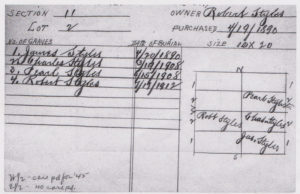 SECTION 11
OWNER Robert Styles
LOT 2
PURCHASED 4/19/1890
SIZE 10 X 20
NO. OF GRAVES DATE OF BURIAL
1. James Styles 4/20/1890
2. Charles Styles /1908
3. Pearly Styles 5/15/1908
4. Robert Styles 7/19/1912
N
Pearly Styles
Robt Styles
Chas. Styles
Jas. Styles
S
W/2 - care pd for '45
E/2 - no care pd.